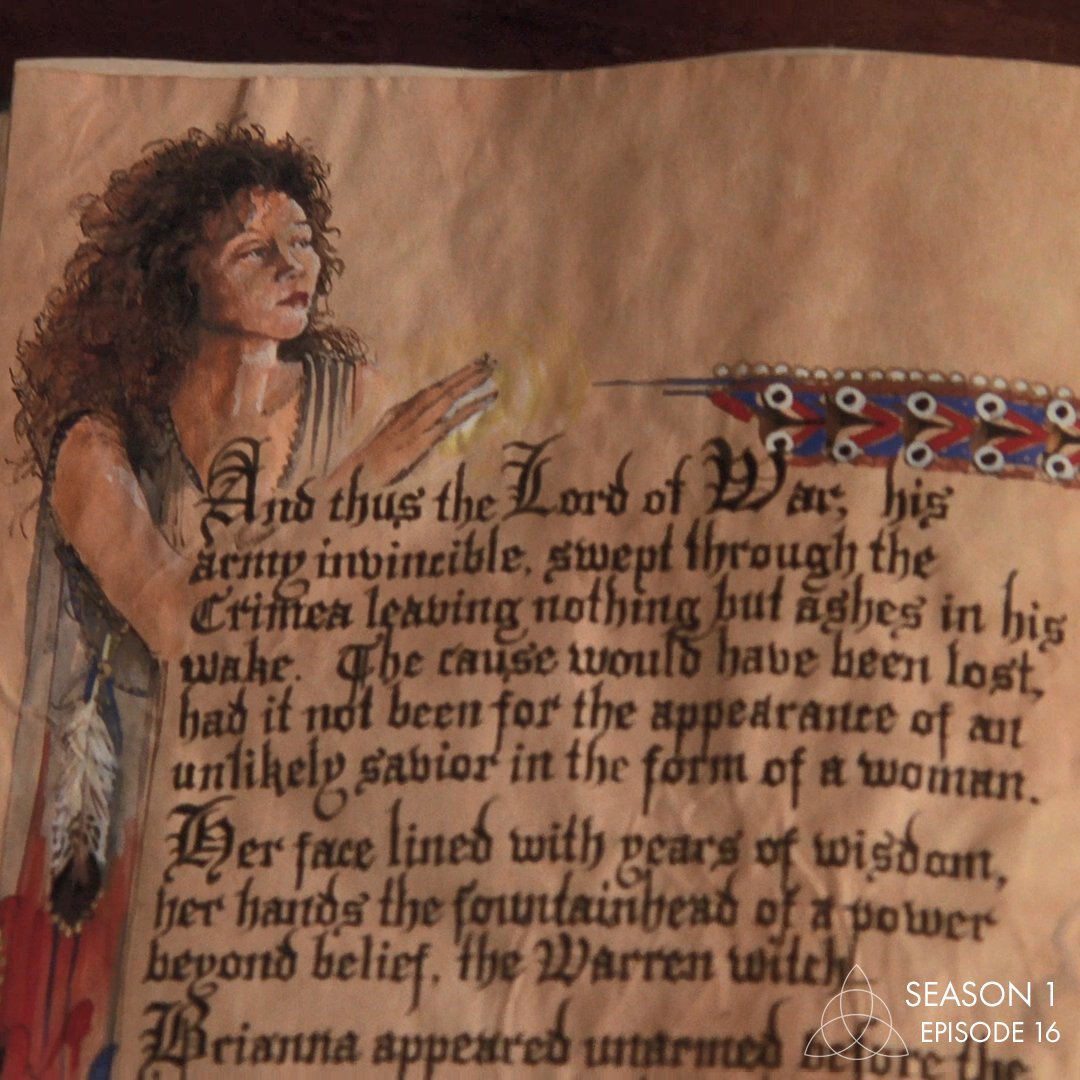 And thus the Lord of War, his
army invincible, swept through the
Crimea leaving nothing but ashes in his
wake. The cause would have been lost,
had it not been for the appearance of an
unlikely savior in the form of a woman.
Her face lined with years of wisdom,
her hands the fountainhead of a power
beyond belief, the Warren witch
Brianna appeared unarmed before the
SEASON 1
EPISODE 16